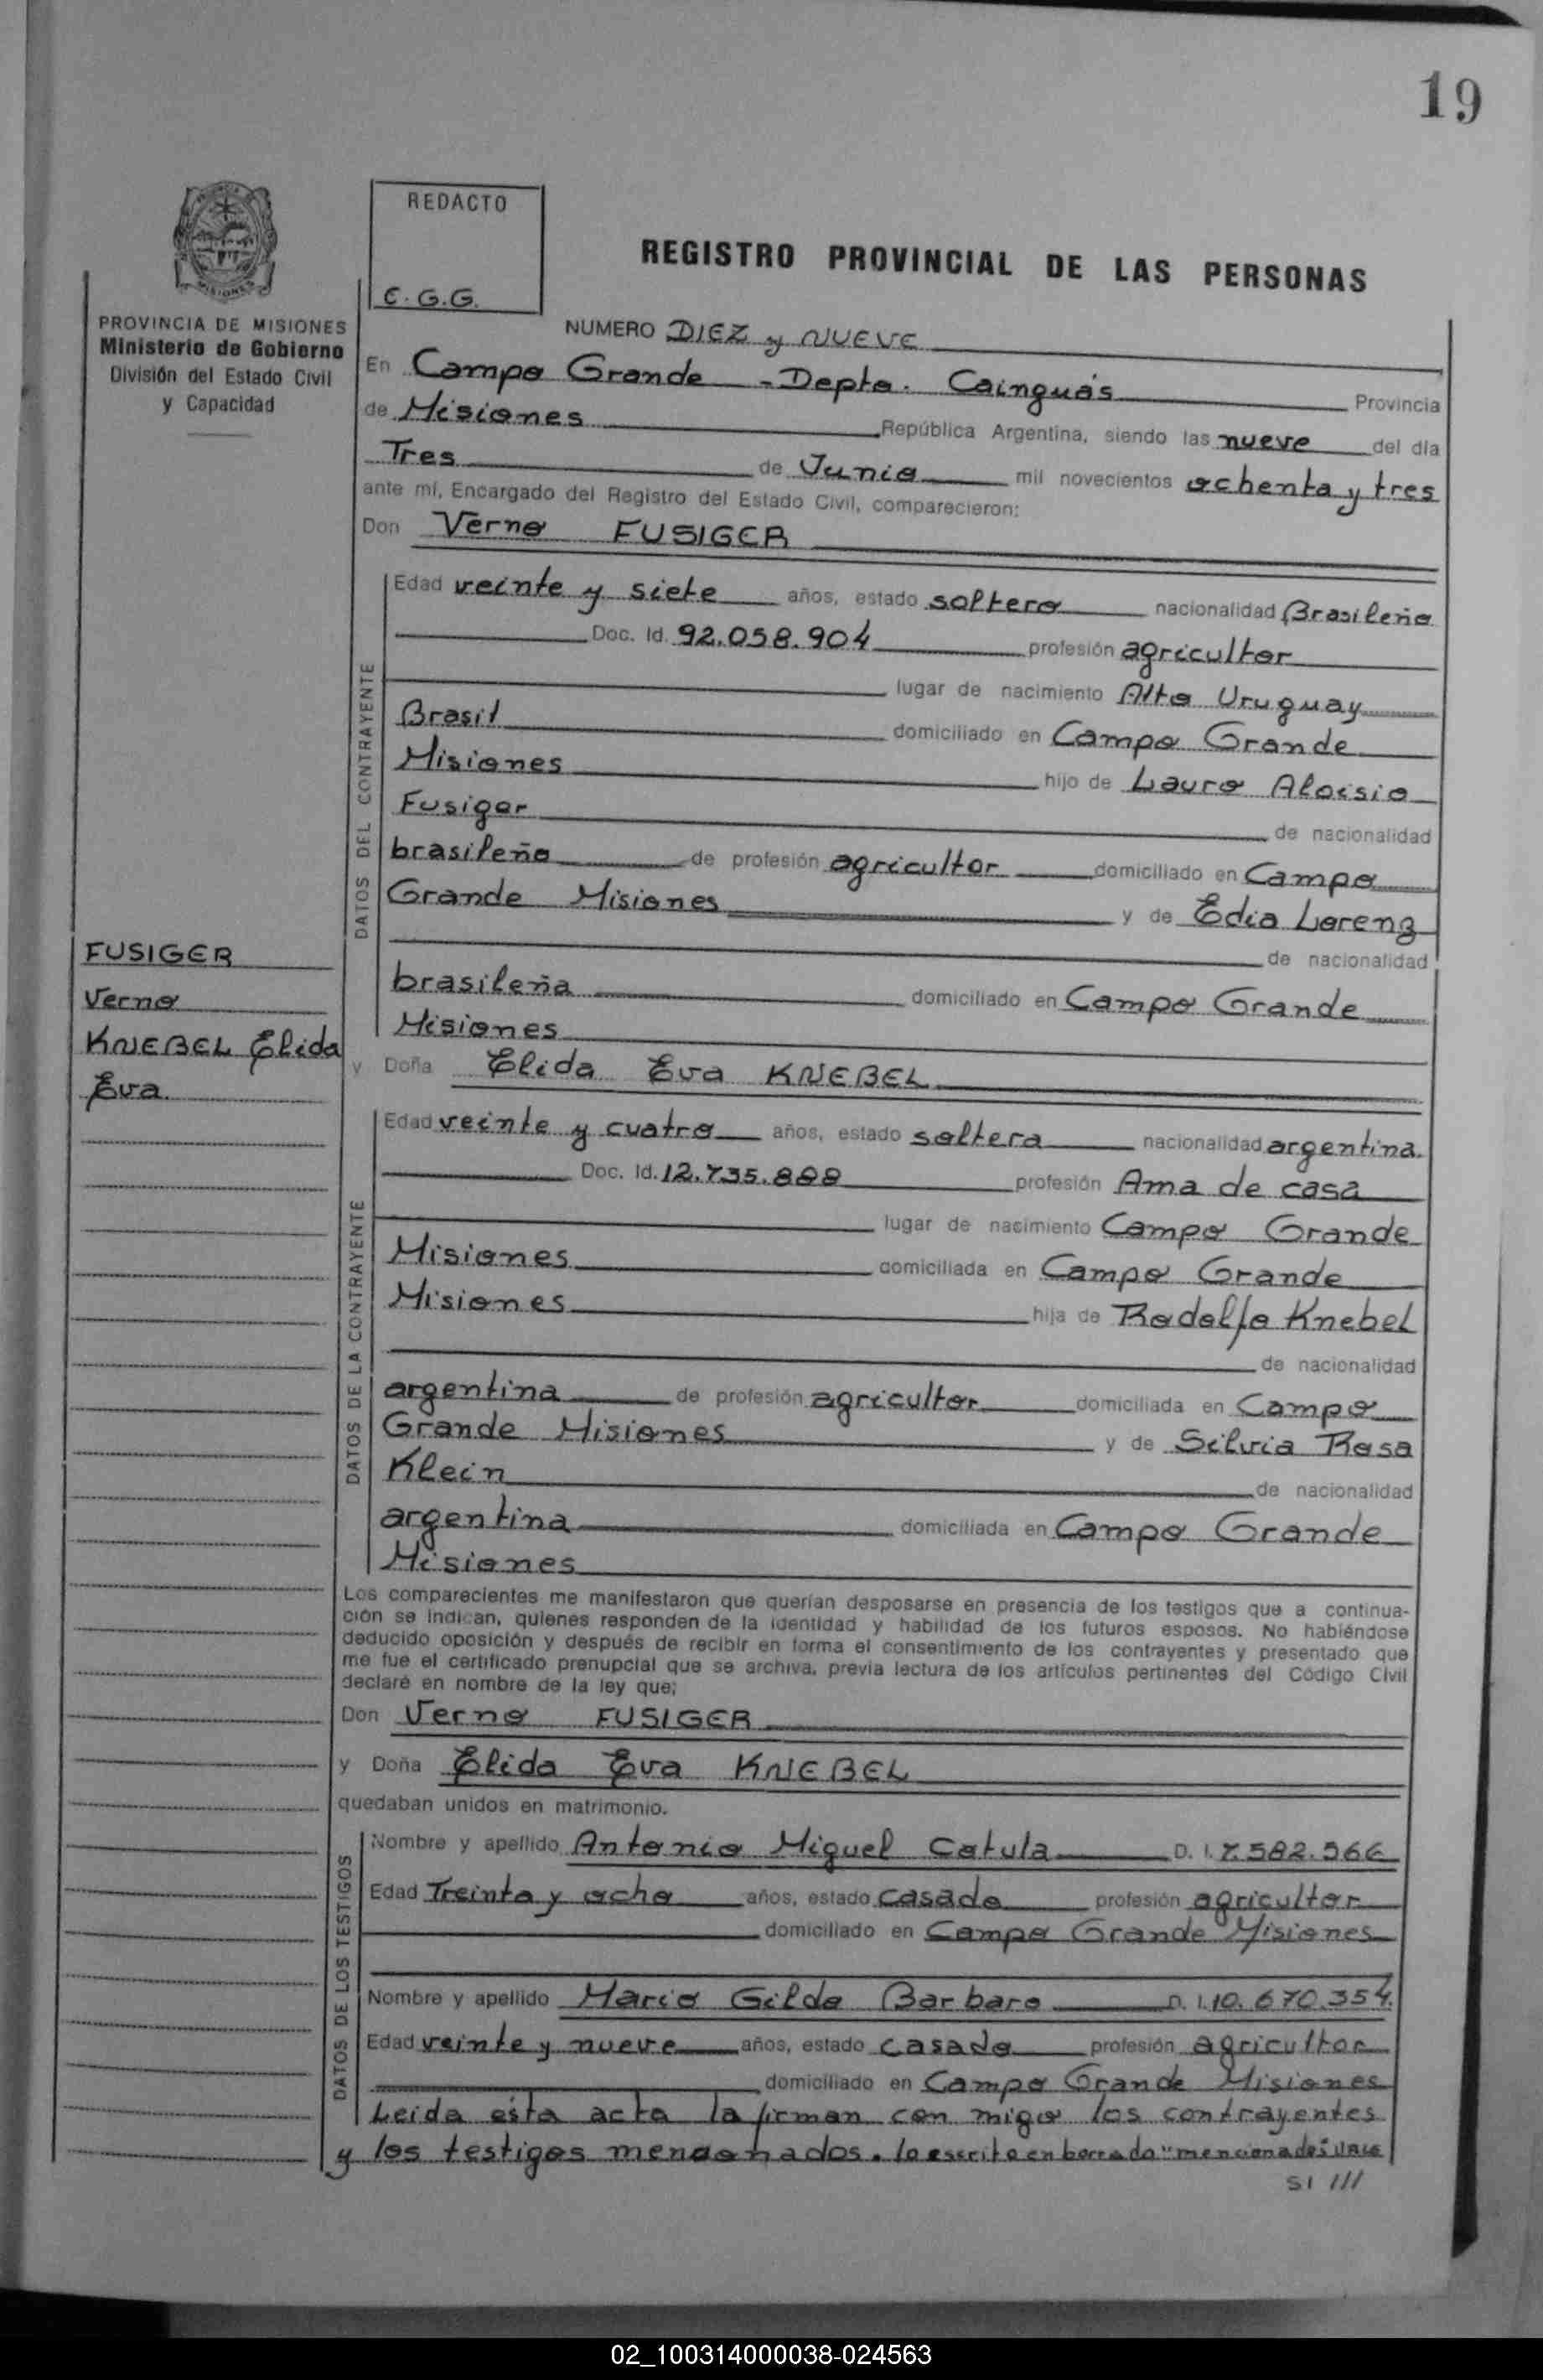 19
REDACTO
C.G.G.
REGISTRO PROVINCIAL DE LAS PERSONAS
MISIONES
PROVINCIA DE MISIONES
Ministerio de Gobierno
División del Estado Civil
y Capacidad
NUMERO DIEZ y NUEVE
En Campo Grande - Depto. Cainguás Provincia
de Misiones República Argentina, siendo las nueve del día
Tres de Junio mil novecientos ochenta y tres
ante mí, Encargado del Registro del Estado Civil, comparecieron:
Don Verno FUSIGER
DATOS DEL CONTRAYENTE
Edad veinte y siete años, estado soltero nacionalidad Brasileño
Doc. Id. 92.058.904 profesión agricultor
lugar de nacimiento Alto Uruguay
Brasil domiciliado en Campo Grande
Misiones hijo de Lauro Aloisio
Fusiger de nacionalidad
brasileño de profesión agricultor domiciliado en Campo
Grande Misiones y de Edia Lorenz
de nacionalidad
brasileña domiciliado en Campo Grande
Misiones
FUSIGER
Verno
KNEBEL Elida
Eva
y Doña Elida Eva KNEBEL
DATOS DE LA CONTRAYENTE
Edad veinte y cuatro años, estado soltera nacionalidad argentina
Doc. Id. 12.735.888 profesión Ama de casa
lugar de nacimiento Campo Grande
Misiones domiciliada en Campo Grande
Misiones hija de Rodolfo Knebel
de nacionalidad
argentina de profesión agricultor domiciliada en Campo
Grande Misiones y de Silvia Rosa
Klein de nacionalidad
argentina domiciliada en Campo Grande
Misiones
Los comparecientes me manifestaron que querían desposarse en presencia de los testigos que a continua-
ción se indican, quienes responden de la identidad y habilidad de los futuros esposos. No habiéndose
deducido oposición y después de recibir en forma el consentimiento de los contrayentes y presentado que
me fue el certificado prenupcial que se archiva, previa lectura de los artículos pertinentes del Código Civil
declaré en nombre de la ley que;
Don Verno FUSIGER
y Doña Elida Eva KNEBEL
quedaban unidos en matrimonio.
DATOS DE LOS TESTIGOS
Nombre y apellido Antonio Miguel Catula D. I. 7.582.966
Edad Treinta y ocho años, estado casado profesión agricultor
domiciliado en Campo Grande Misiones
Nombre y apellido Mario Gildo Barbaro D. I. 10.670.354.
Edad veinte y nueve años, estado casado profesión agricultor
domiciliado en Campo Grande Misiones
Leida esta acta la firman con migo los contrayentes
y los testigos mencionados. lo escrito en borrado "mencionados" VALE
SI ///
02_100314000038-024563